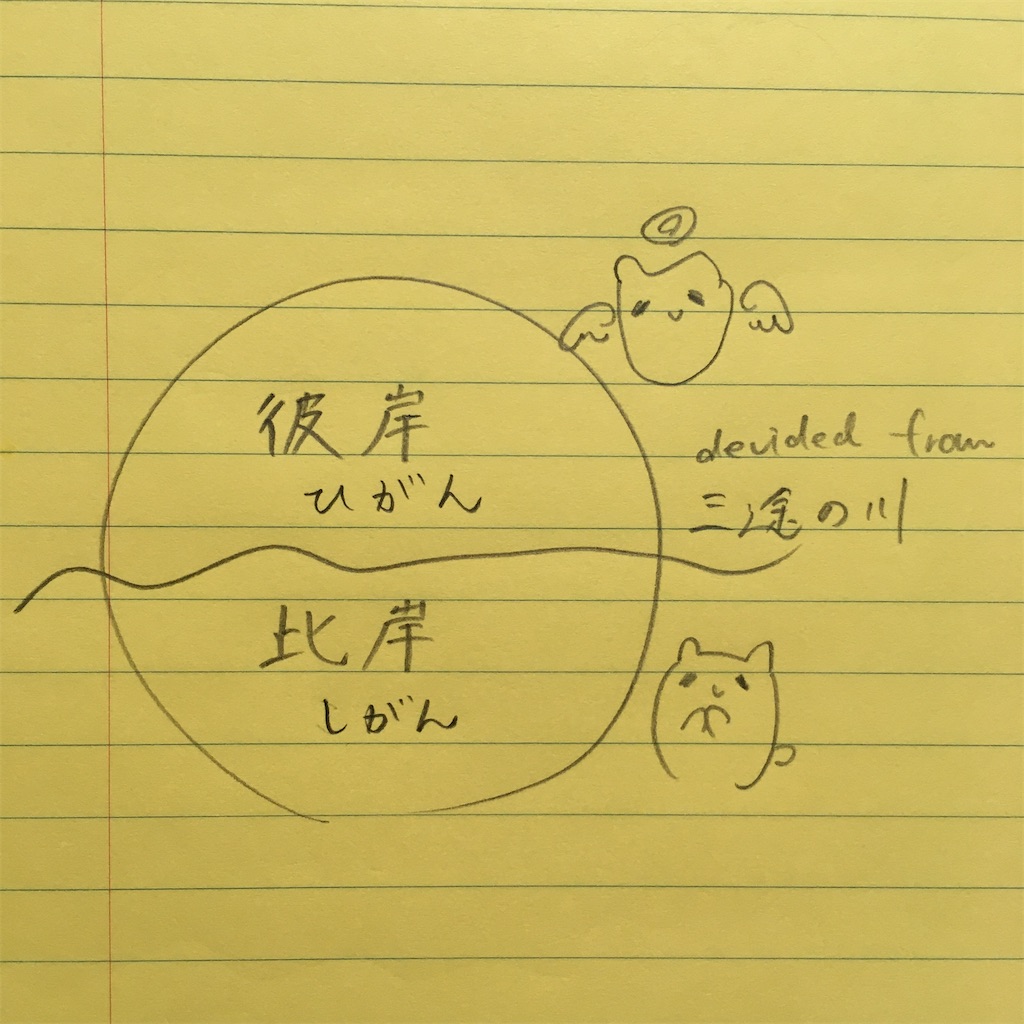 彼岸
ひがん
devided from
三途の川
比岸
しがん